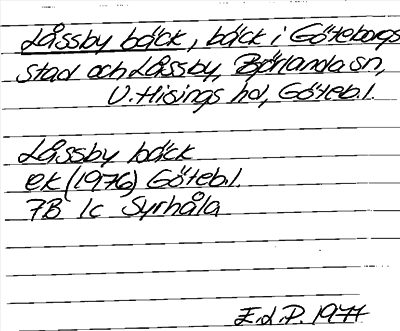 Låssby bäck, bäck i Göteborgs
stad och Låssby, Björlanda sn,
V. Hisings hd, Göteb.l.
Låssby bäck
ek (1976) Göteb.l.
7B 1c Syrhåla
E.L.P. 1977